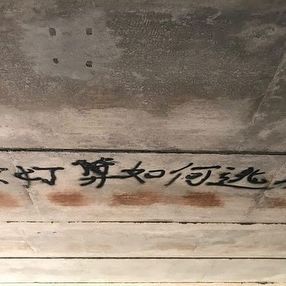 打算如何逃